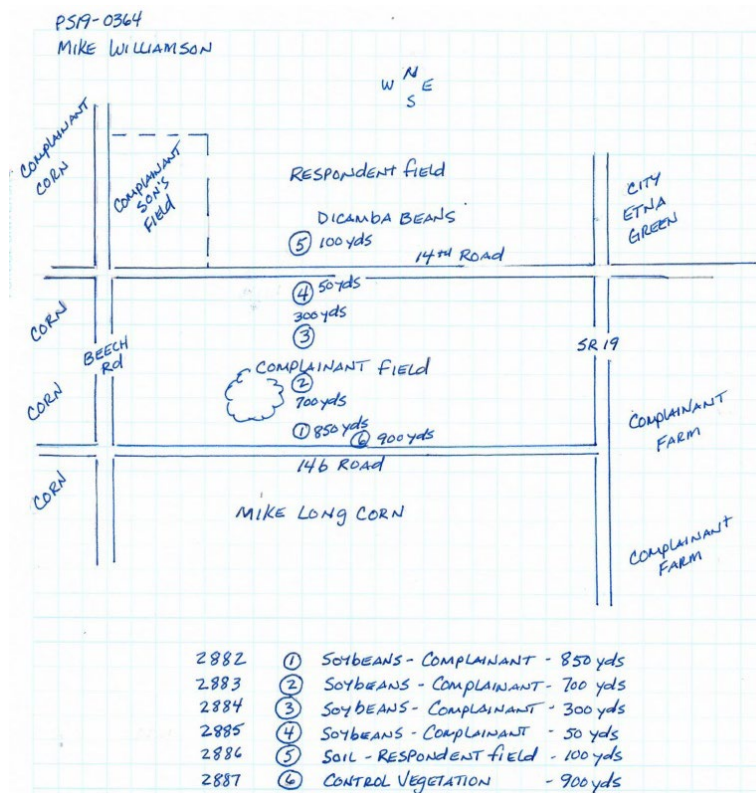 PS19-0364
MIKE WILLIAMSON
N
W E
S
COMPLAINANT
CORN
COMPLAINANT
SON'S
FIELD
RESPONDENT FIELD
DICAMBA BEANS
⑤ 100 yds
CITY
ETNA
GREEN
14TH ROAD
④ 50 yds
300 yds
③
CORN
BEECH
Rd
SR 19
COMPLAINANT FIELD
②
700 yds
CORN
① 850 yds
⑥ 900 yds
COMPLAINANT
FARM
14b ROAD
CORN
MIKE LONG CORN
COMPLAINANT
FARM
2882 ① SOYBEANS - COMPLAINANT - 850 yds
2883 ② SOYBEANS - COMPLAINANT - 700 yds
2884 ③ SOYBEANS - COMPLAINANT - 300 yds
2885 ④ SOYBEANS - COMPLAINANT - 50 yds
2886 ⑤ SOIL - RESPONDENT FIELD - 100 yds
2887 ⑥ CONTROL VEGETATION - 900 yds